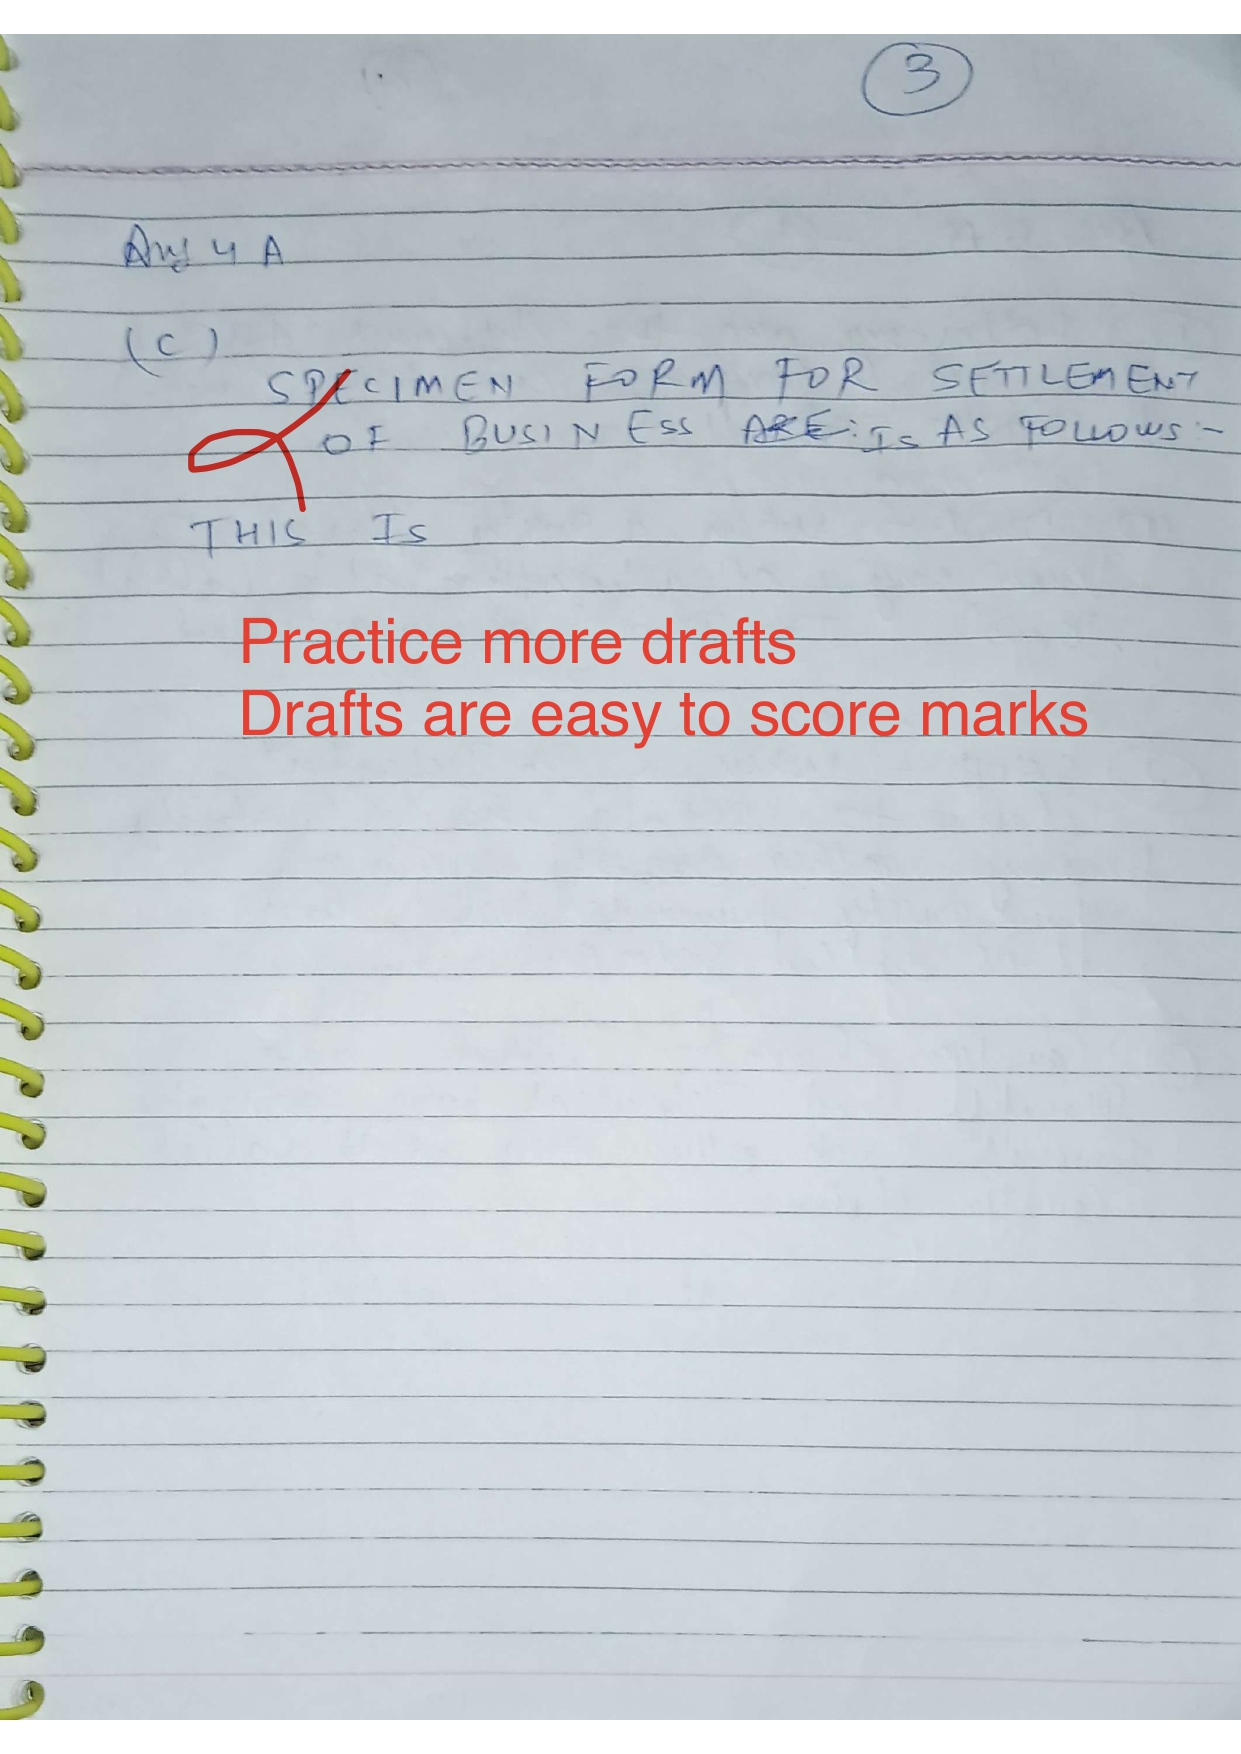 3
Ans 4 A
(C)
SPECIMEN FORM FOR SETTLEMENT
OF BUSINESS ARE: IS AS FOLLOWS:-
THIS IS
Practice more drafts
Drafts are easy to score marks